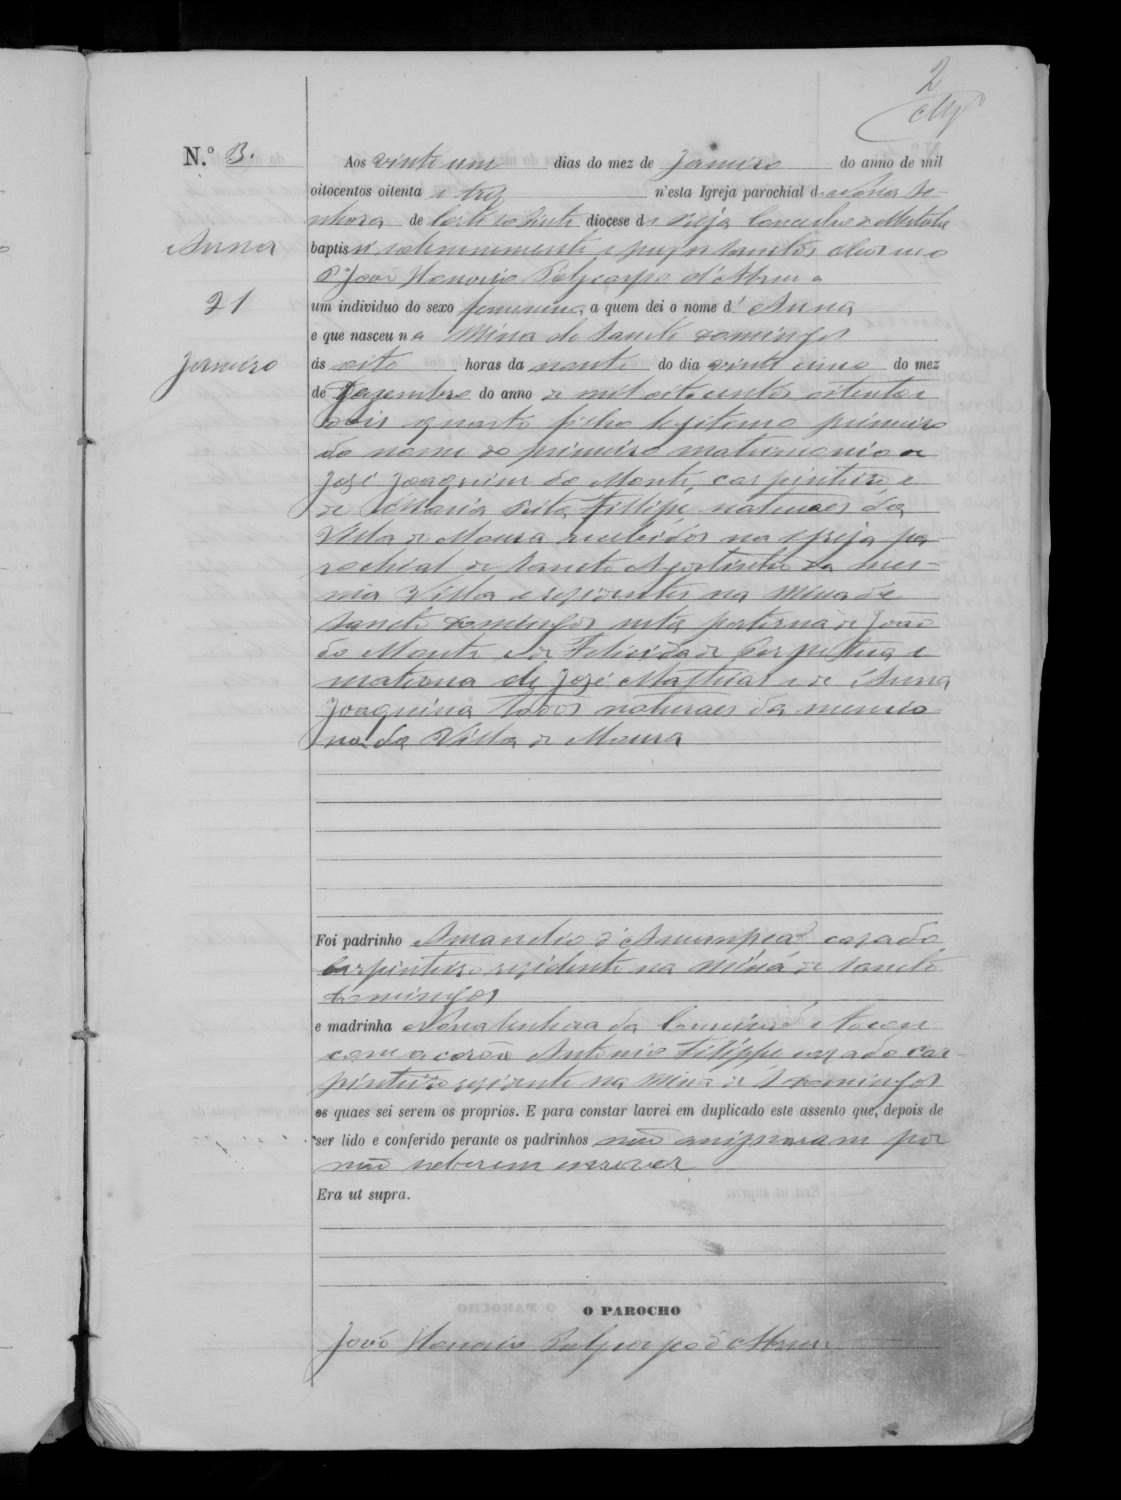 2
N.º 3.
Anna
21
Janeiro
Aos vinte um dias do mez de Janeiro do anno de mil
oitocentos oitenta e trez n'esta Igreja parochial de Nossa Se-
nhora de diocese de Beja Concelho de Mertola
baptisei solemnemente e puz os sanctos oleos eu o
P.e João Honorio Polycarpo d'Abreu a
um individuo do sexo femenino, a quem dei o nome d' Anna
e que nasceu na Mina de Sancto Domingos
ás oito horas da noute do dia vinte cinco do mez
de Dezembro do anno de mil oitocentos oitenta e
dois quarto filho legitimo primeiro
do nome do primeiro matrimonio de
José Joaquim do Monte, carpinteiro, e
de Maria Rita Fillipe, naturaes da
Villa de Moura recebidos na Igreja pa-
rochial de Sancto Agostinho da mes-
ma Villa e residentes na Mina de
Sancto Domingos neta paterna de João
do Monte e de Felicidade Perpetua e
materna de José Mathias e de Anna
Joaquina todos naturaes da mencio-
nada Villa de Moura
Foi padrinho Amandio d'Assumpção casado
carpinteiro residente na Mina de Sancto
Domingos
e madrinha Nossa Senhora da Conceição e tocou
com a corôa Antonio Filippe casado car-
pinteiro residente na Mina de S Domingos
os quaes sei serem os proprios. E para constar lavrei em duplicado este assento que, depois de
ser lido e conferido perante os padrinhos não assignaram por
não saberem escrever
Era ut supra.
O PAROCHO
João Honorio Polycarpo d'Abreu